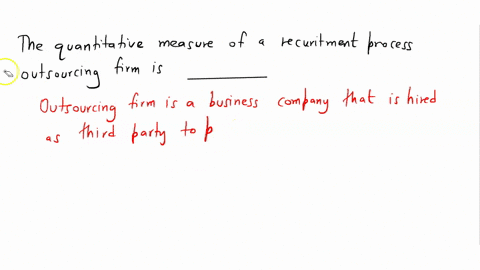 The quantitative measure of a recuritment process
outsourcing firm is ________
Outsourcing firm is a business company that is hired
as third party to p